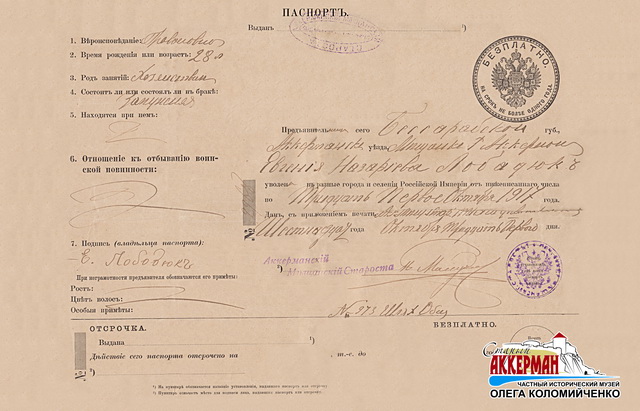 ПАСПОРТЪ.
Выданъ
БЕЗПЛАТНО
НА СРОКЪ НЕ БОЛѢЕ ОДНОГО ГОДА.
1. Вѣроисповѣданіе: Православно
2. Время рожденія или возрастъ: 28 л
3. Родъ занятій:
4. Состоитъ ли или состоялъ ли въ бракѣ:
Замужняя
5. Находятся при немъ:
6. Отношеніе къ отбыванію воин-
ской повинности:
Предъявитель сего Бессарабской губ.,
Аккерманскаго уѣзда, Мещанка г. Аккермана
Евгенія Назарьева Лободюкъ
уволена на разные города и селенія Россійской Имперіи отъ нижеписаннаго числа
по Тридцать Первое Октября 1917 года.
Данъ, съ приложеніемъ печати,
Шестнадцат года Октября Тридцать Перваго дня.
7. Подпись (владѣльца паспорта):
Е. Лободюкъ
Аккерманскій
Мѣщанскій Староста
При неграмотности предъявителя обозначаются его примѣты:
Ростъ:
Цвѣтъ волосъ:
Особыя примѣты:
№ 973
ОТСРОЧКА.
БЕЗПЛАТНО.
Выдана
Дѣйствіе сего паспорта отсрочено на м.-с. до
Старый
АККЕРМАН
ЧАСТНЫЙ ИСТОРИЧЕСКИЙ МУЗЕЙ
ОЛЕГА КОЛОМИЙЧЕНКО